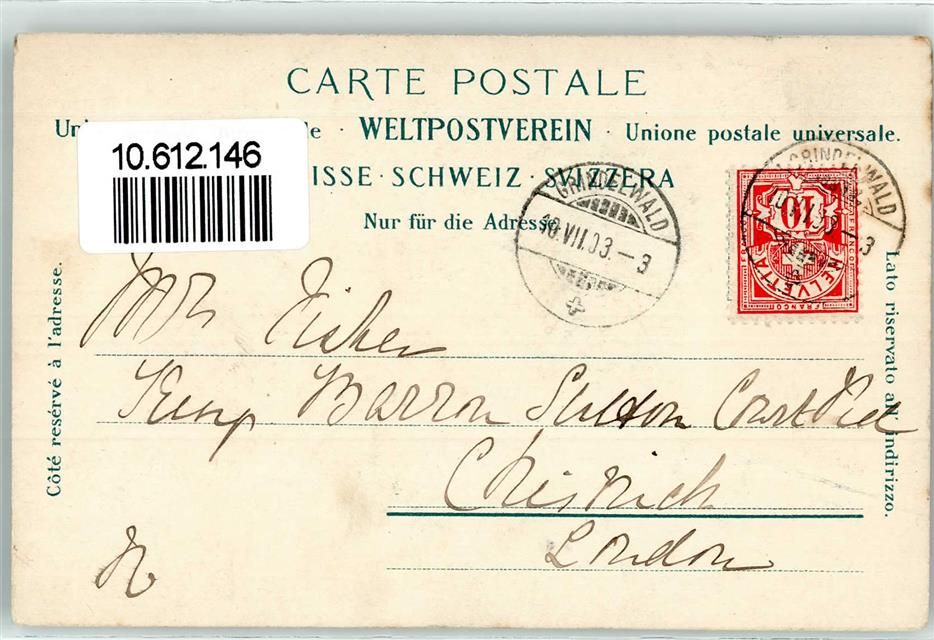 CARTE POSTALE
Un le · WELTPOSTVEREIN · Unione postale universale.
10.612.146
ISSE · SCHWEIZ · SVIZZERA
Nur für die Adresse
GRINDELWALD
10.VII.03.-3
GRINDELWALD
10.VII.03.-3
10
HELVETIA
FRANCO
Côté reservé à l'adresse.
Lato riservato all'indirizzo.
Mr Fisher
Barron Sutton Court Rd
Chiswick
London